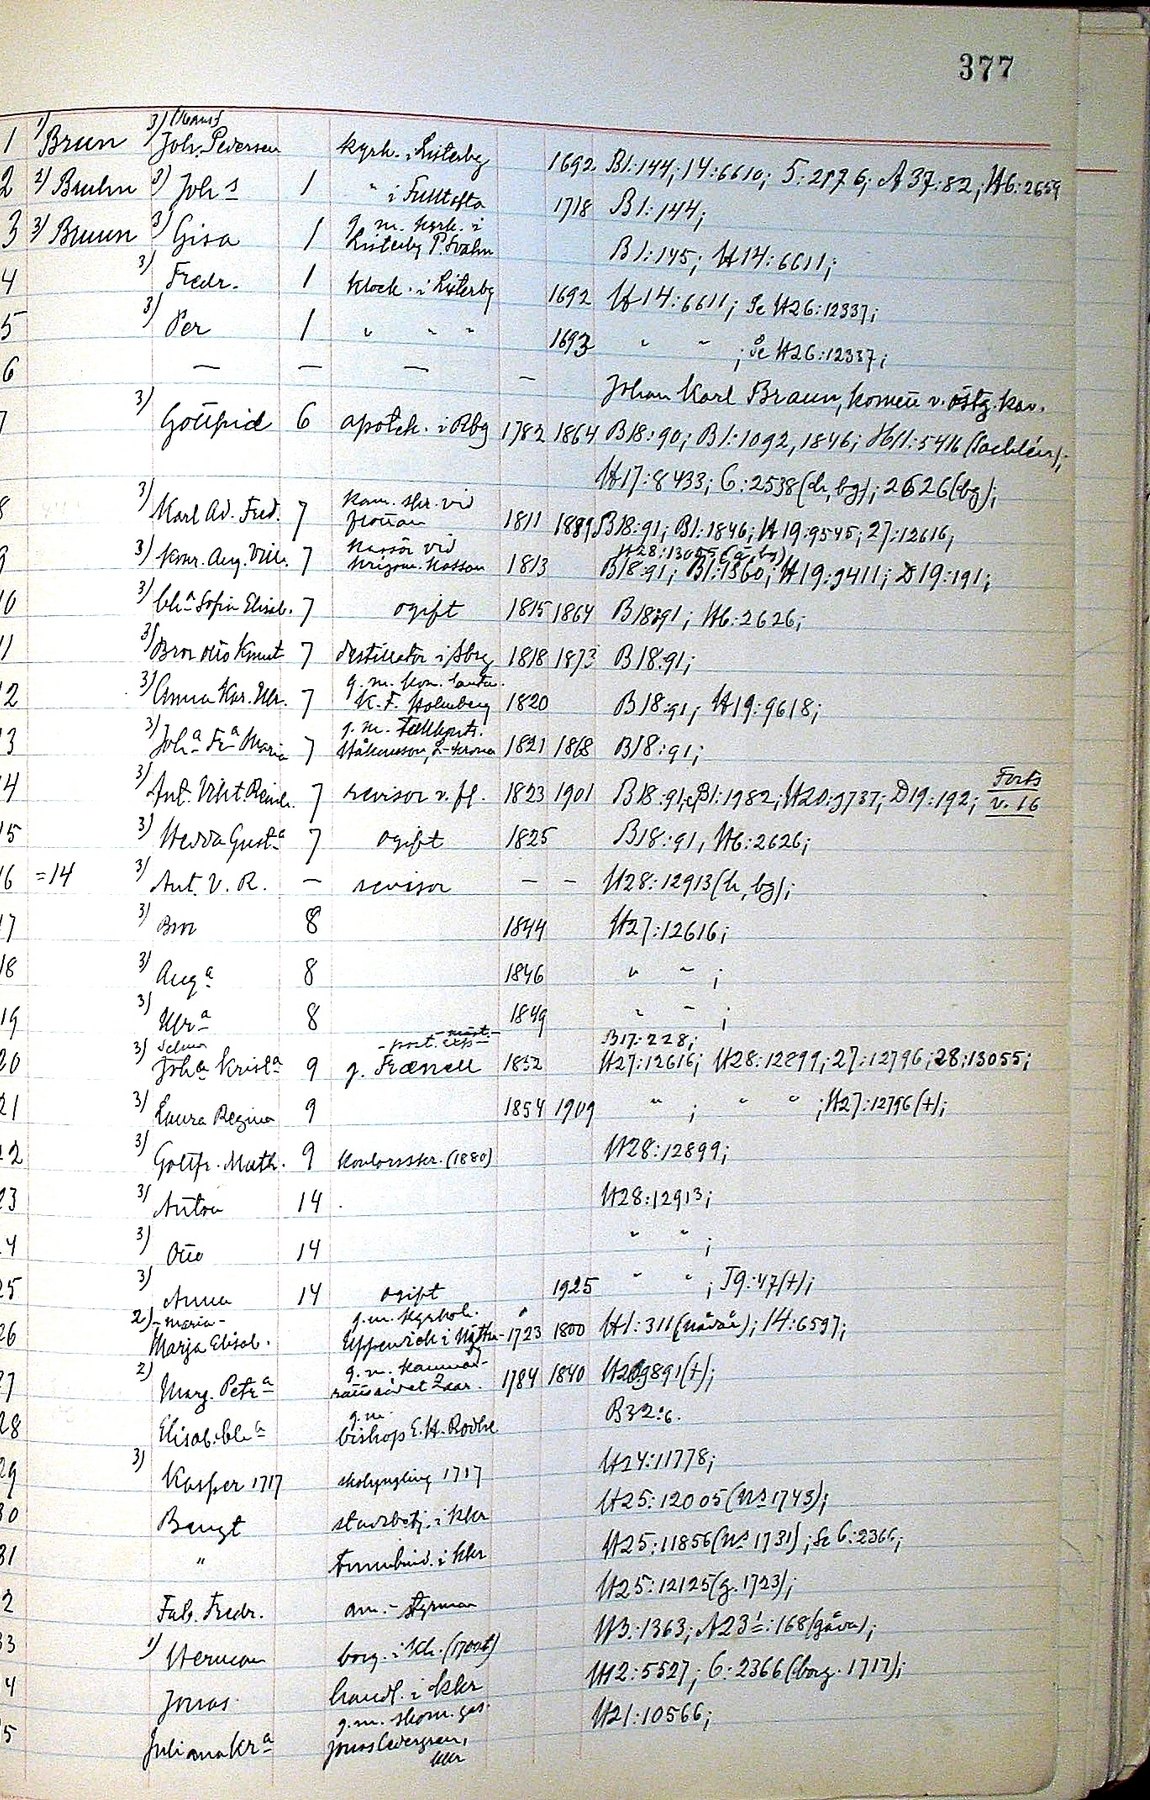 377
1 1) Brun 3) (Hans) Joh. Pedersen kyrh. i Listerby 1692 B1:144; 14:6610; 5:2176; A37:82; H6:2659
2 2) Bruhn 3) Joh s 1 " i Fulltofta 1718 B1:144;
3 3) Bruun 3) Gisa 1 g. m. kyrk. i Listerby P. Svahn B1:145; H14:6611;
4 3) Fredr. 1 klock. i Listerby 1692 H14:6611; Se H26:12337;
5 3) Per 1 " " " 1693 " " ; Se H26:12337;
6 — — — — Johan Karl Braun, v. östg. kav.
7 3) Gottfrid 6 apotek. i Rbg 1782 1864 B18:90; B1:1092, 1846; H11:5416
H17:8433; 6:2538 (h, bg); 2626 (bg);
8 3) Karl Ad. Fred. 7 kam. skr. vid flottan 1811 1889 B18:91; B1:1846; H19:9545; 27:12616;
H28:13055
9 3) Aug. Vilh. 7 vid krigsm. kassan 1813 B18:91; B1:1360; H19:9411; D19:191;
10 3) Sofia Elisab. 7 ogift 1815 1864 B18:91; H6:2626;
11 3) Bror Otto Knut 7 destillator i Sbrg 1818 1873 B18:91;
12 3) Anna Kar. Ulr. 7 g. m. K. F. Holmberg 1820 B18:91; H19:9618;
13 3) Joh a Fr a Maria 7 g. m. Håkansson, L-krona 1821 1868 B18:91;
14 3) Ant. Vikt. Reinh. 7 revisor v. fl. 1823 1901 B18:91; B1:1982; H20:9737; D19:192; Forts v. 16
15 3) Hedda Gust a 7 ogift 1825 B18:91, H6:2626;
16 =14 3) Ant. V. R. — revisor — — H28:12913 (h, bg);
17 3) Bror 8 1844 H27:12616;
18 3) Aug a 8 1846 " " ;
19 3) Ulr a 8 1849 " " ;
20 3) Selma Joh a Krist a 9 g. Frænell 1852 B17:228; H27:12616; H28:12899; 27:12796; 28:13055;
21 3) Laura Regina 9 1854 1909 " ; " " ; H27:12796 (+);
22 3) Gottfr. Math. 9 kontorsskr. (1880) H28:12899;
23 3) Anton 14 H28:12913;
24 3) Otto 14 " " ;
25 3) Anna 14 ogift 1925 " " ; J9:47 (+);
26 2) -maria- Marja Elisab. g. m. kyrkoh. Uppendich i 1723 1800 H1:311 ; 14:6597;
27 2) Marg. Petr a g. m. 1784 1840 H20:9891 (+);
28 Elisab. g. m. bishop E. H. Rodhe B32:6.
29 3) Kasper 1717 skolyngling 1717 H24:11778;
30 Bengt stadsbetj. i kkr H25:12005 (No 1743);
31 " tunnbind. i kkr H25:11856 (No 1731); Se 6:2366;
32 Fab. Fredr. am.-styrman H25:12125 (g. 1723);
33 1) Herman borg. i Kh. H3:1363; A23:168 (gåva);
34 Jonas handl. i kkr H12:5527; 6:2366 (borg. 1717);
35 Juliana Kr a g. m. skom. ges. Jonas Cedergren, kkr H21:10566;